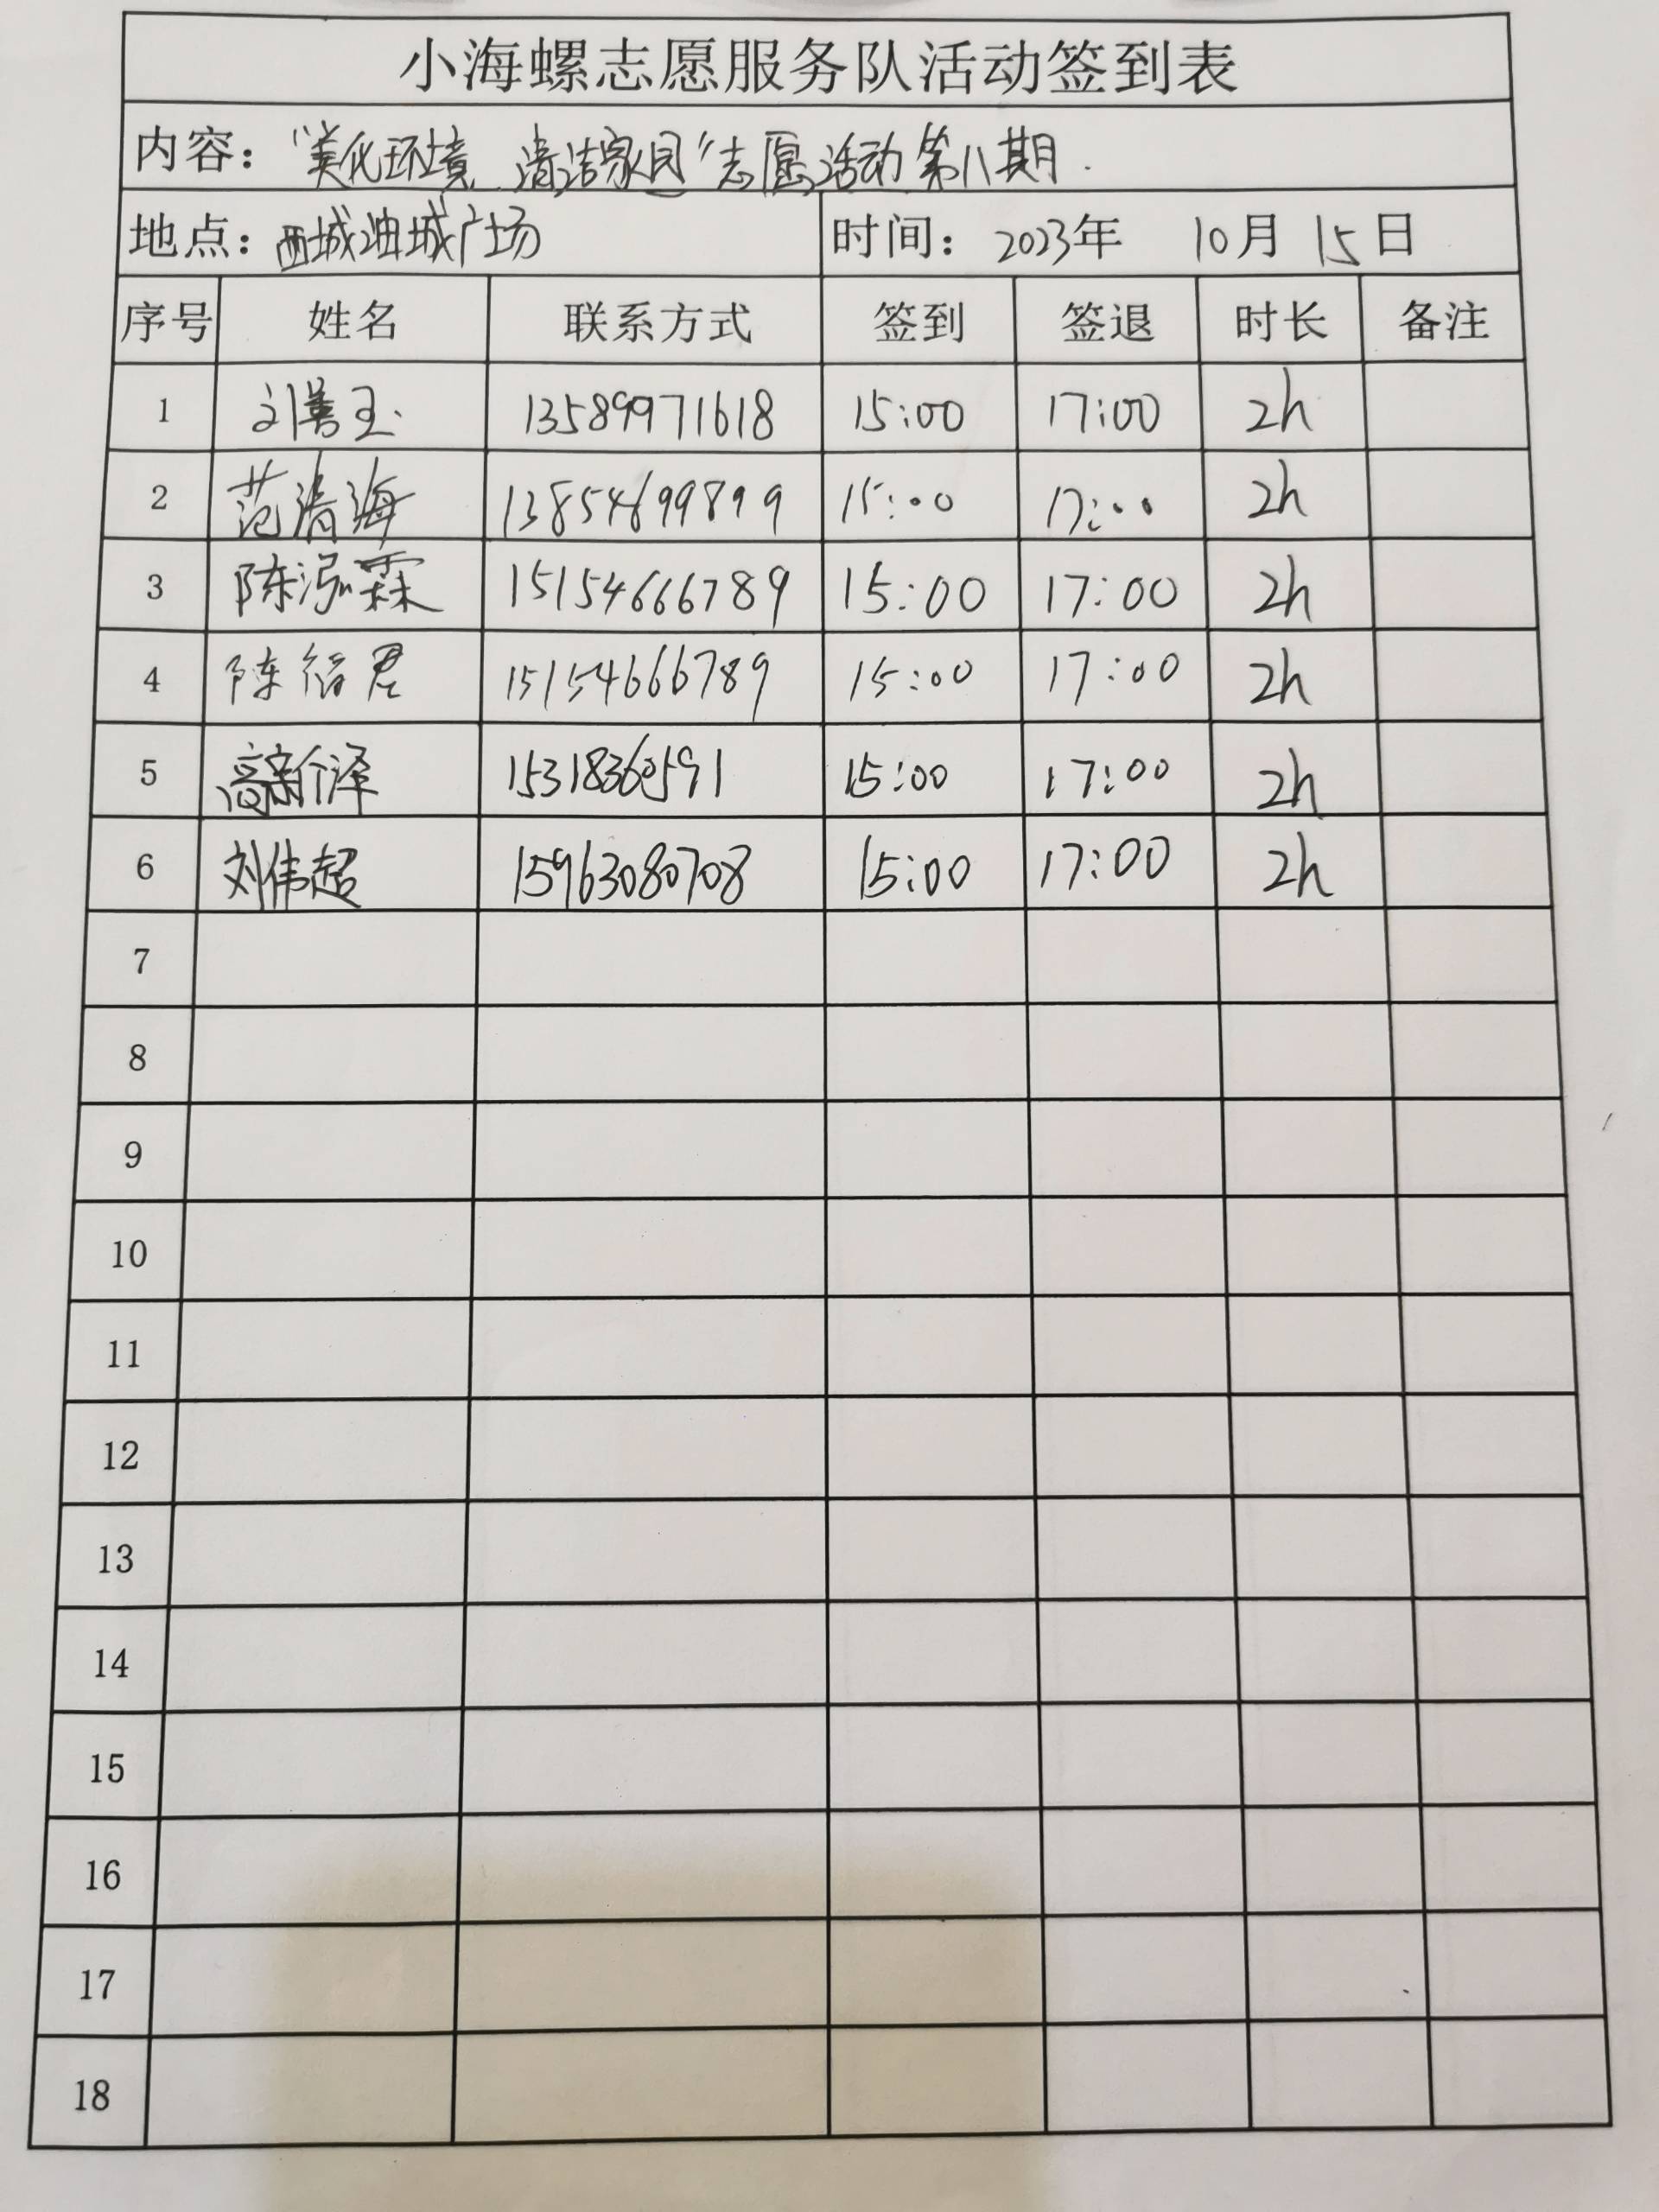 小海螺志愿服务队活动签到表
内容：“美化环境 清洁家园”志愿活动第八期.
地点：西城油城广场 时间：2023年 10月 15日
序号 姓名 联系方式 签到 签退 时长 备注
1 刘善玉 13589971618 15:00 17:00 2h
2 范清海 13854699899 15:00 17:00 2h
3 陈泓霖 15154666789 15:00 17:00 2h
4 陈 君 15154666789 15:00 17:00 2h
5 高 泽 15318360591 15:00 17:00 2h
6 刘伟超 15963080708 15:00 17:00 2h
7
8
9
10
11
12
13
14
15
16
17
18